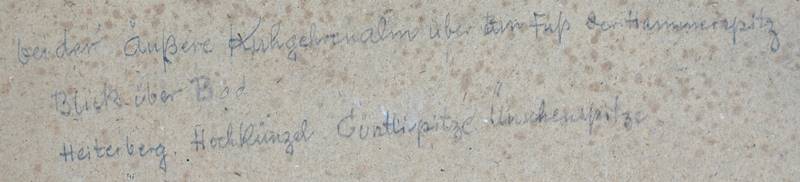 bei der Äußere Kuhgehrenalm über am Fuß der Hammerspitz
Blick über Bad
Heiterberg. Hochkünzel Güntlispitze Ünschenspitze